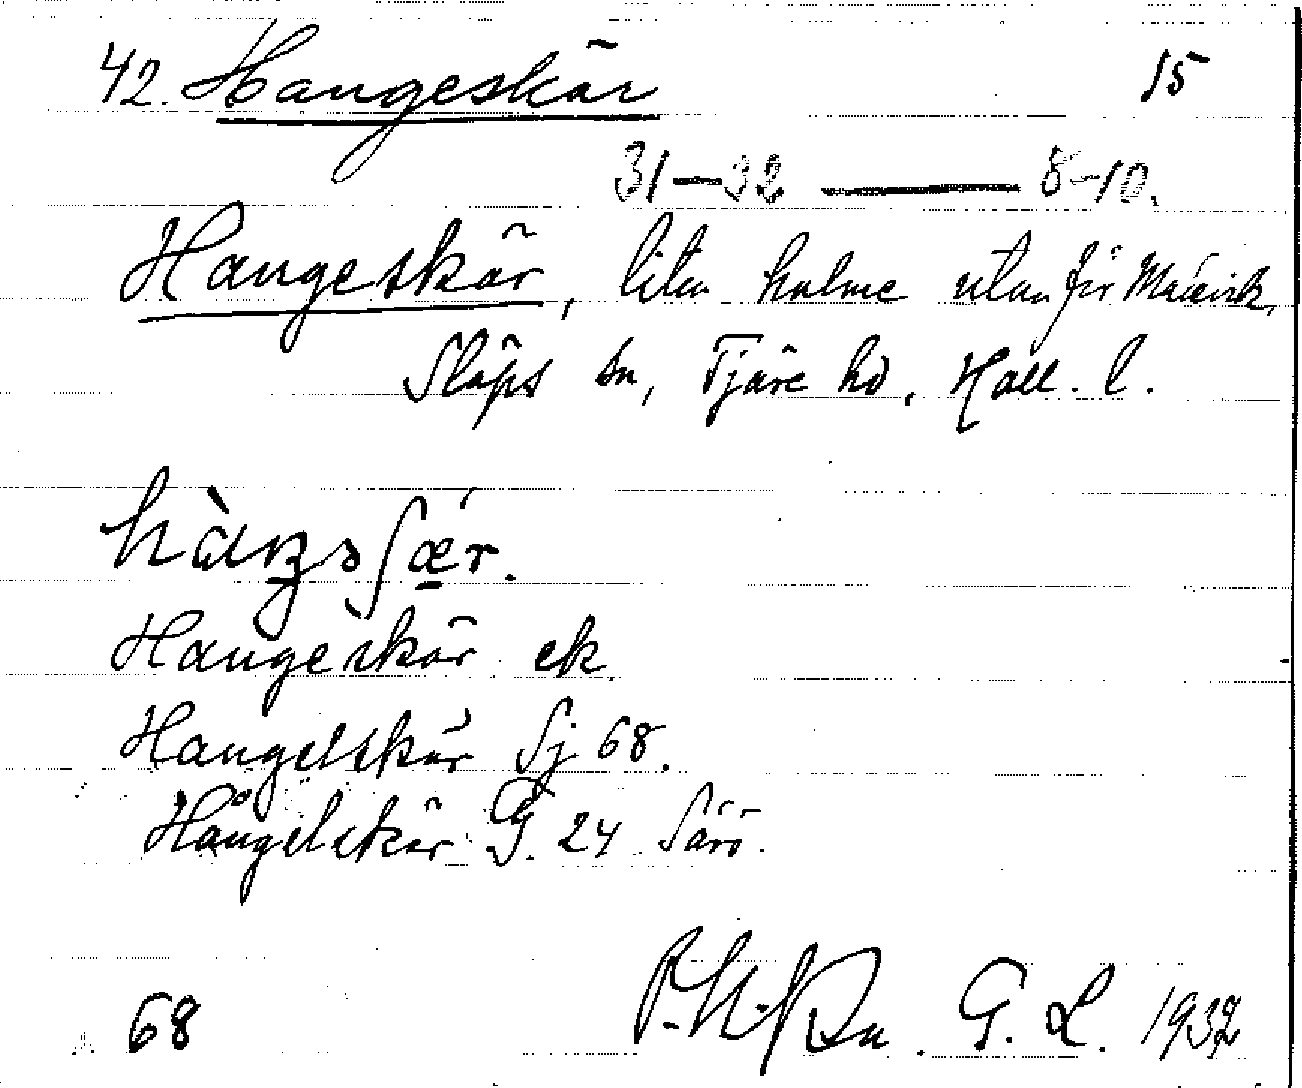 42. Hangeskär 15
31–32 — 8–10.
Hangeskär, liten holme utanför Malevik,
Släps sn, Fjäre hd, Hall. l.
Hangeskär ek.
Hangelskär Sj 68.
Hångelskär G. 24 Särö.
68 G. L. 1932